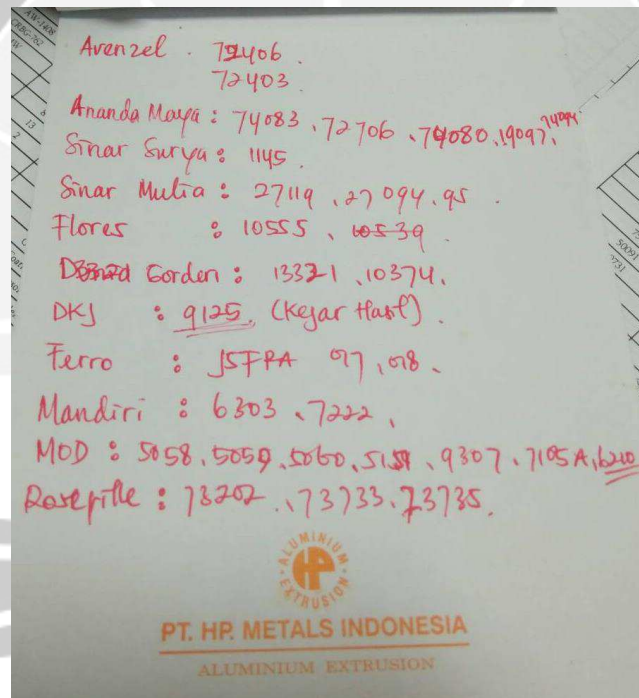 Avenzel . 72406.
72403
Ananda Maya : 74083, 72706, 74080, 19097, 74094
Sinar Surya : 1145.
Sinar Mulia : 27119, 27094, 95.
Flores : 10555, 10539.
Gorden : 13321, 10374.
DKJ : 9125. (Kejar Hasil).
Ferro : JSFPA 077, 078.
Mandiri : 6303, 7222,
MOD : 5058, 5059, 5060, 5151, 9307, 7105A, 6210
Rosepille : 73202, 73733, 73735.
ALUMINIUM EXTRUSION
HP
PT. HP. METALS INDONESIA
ALUMINIUM EXTRUSION